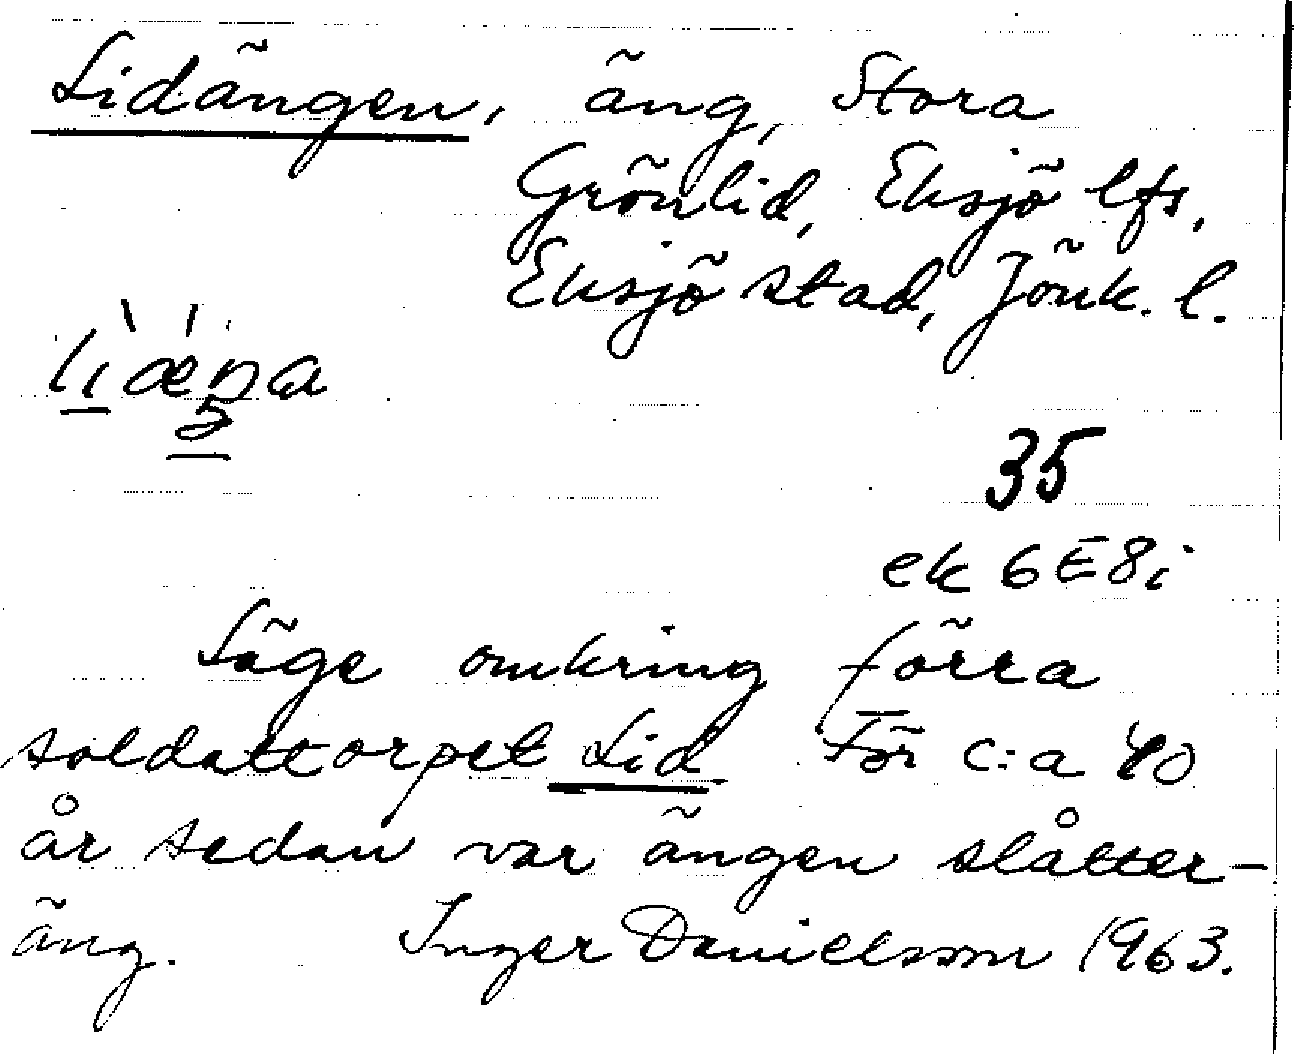 Lidängen, äng, Stora
Grönlid, Eksjö lfs,
Eksjö stad, Jönk. l.
35
ek 6E8i
Läge omkring förra
soldattorpet Lid. För c:a 40
år sedan var ängen slåtter-
äng. Inger Danielsson 1963.